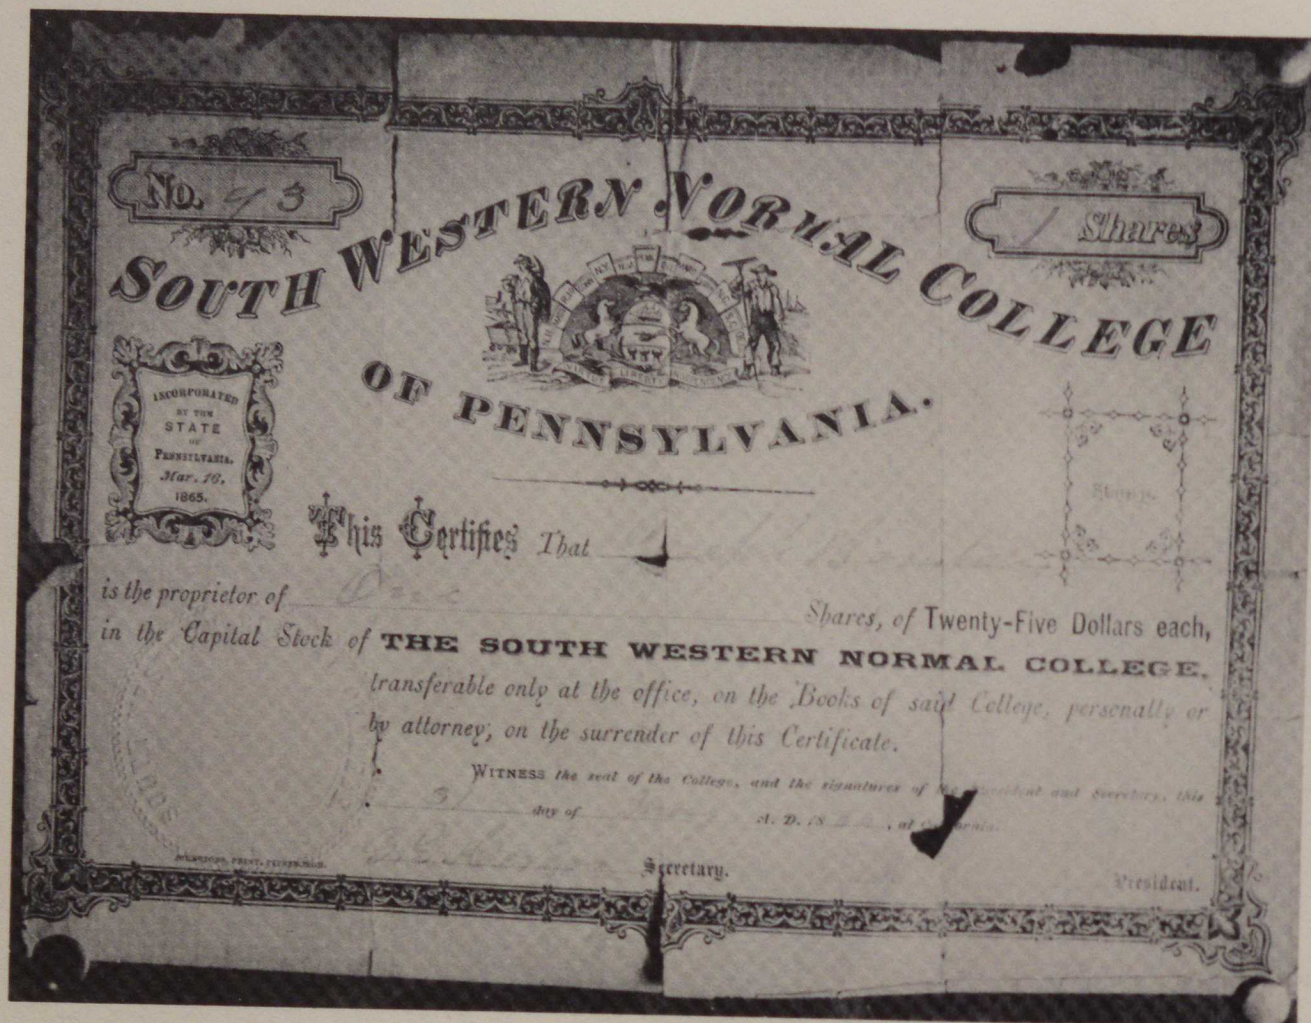 No. 93
1 Shares
SOUTH WESTERN NORMAL COLLEGE
OF PENNSYLVANIA.
INCORPORATED
BY THE
STATE
OF
PENNSYLVANIA.
Mar. 16,
1865.
Stamp.
This Certifies That
is the proprietor of One Shares, of Twenty-Five Dollars each,
in the Capital Stock of THE SOUTH WESTERN NORMAL COLLEGE,
transferable only at the office, on the Books of said College, personally or
by attorney, on the surrender of this Certificate.
WITNESS the seal of the College, and the signatures of the President and Secretary, this
day of A. D. 18 , at California.
Secretary.
President.